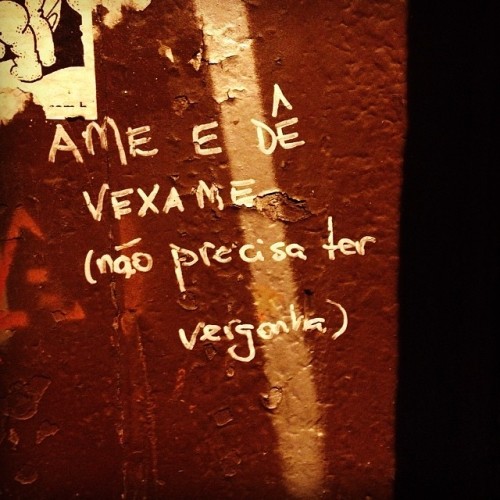 AME E DÊ
VEXAME
(não precisa ter
vergonha)